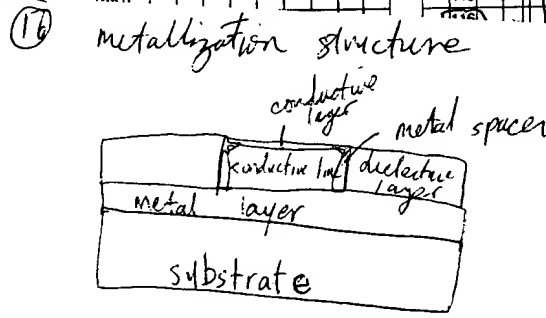 16
metallization structure
conductive
layer
metal spacer
conductive line
dielectric
layer
metal layer
substrate